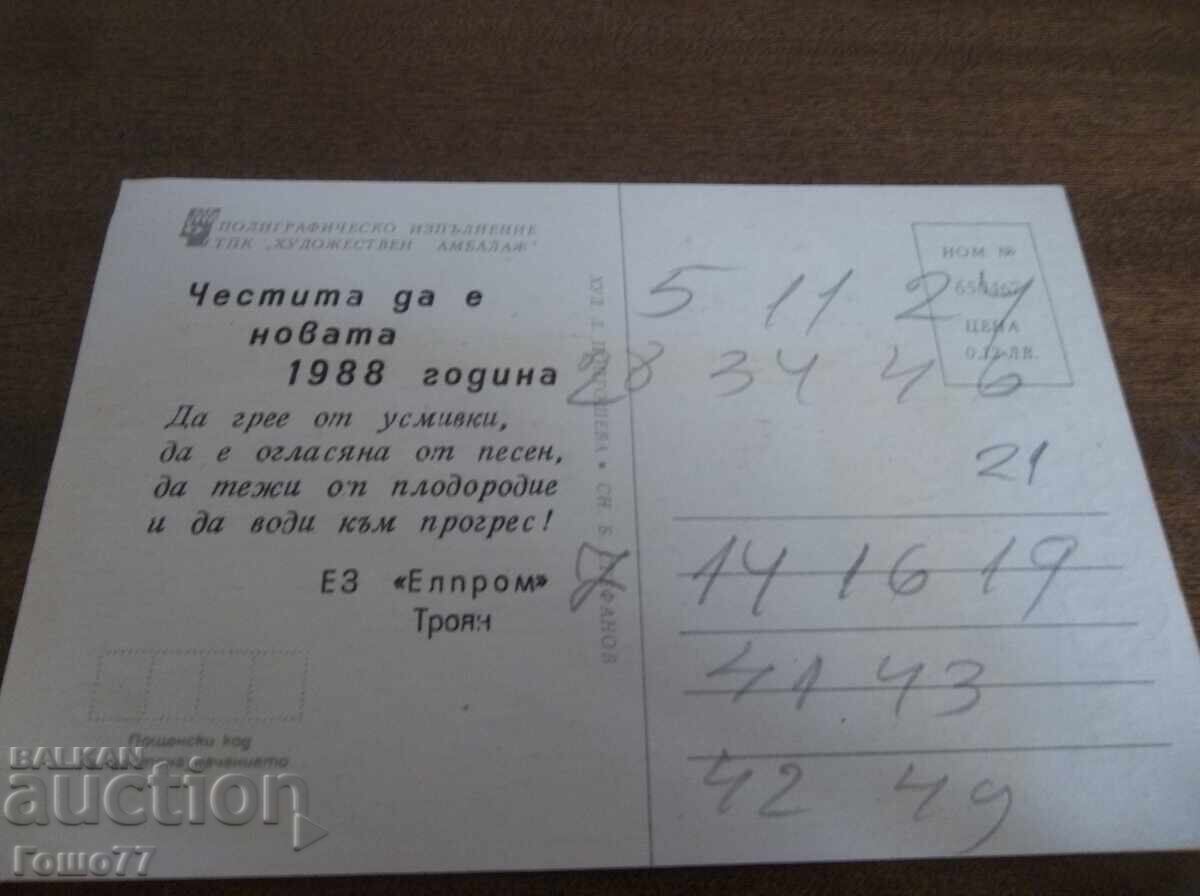 ПОЛИГРАФИЧЕСКО ИЗПЪЛНЕНИЕ
ТПК „ХУДОЖЕСТВЕН АМБАЛАЖ"
Честита да е
новата
1988 година
Да грее от усмивки,
да е огласяна от песен,
да тежи от плодородие
и да води към прогрес!
ЕЗ «Елпром»
Троян
Пощенски код
ХУД.
СН. Б.
НОМ. №
ЦЕНА
0.12 ЛВ.
5 11 21
28 34 46
21
8 14 16 19
41 43
42 49
BALKAN
auction
Гошо77